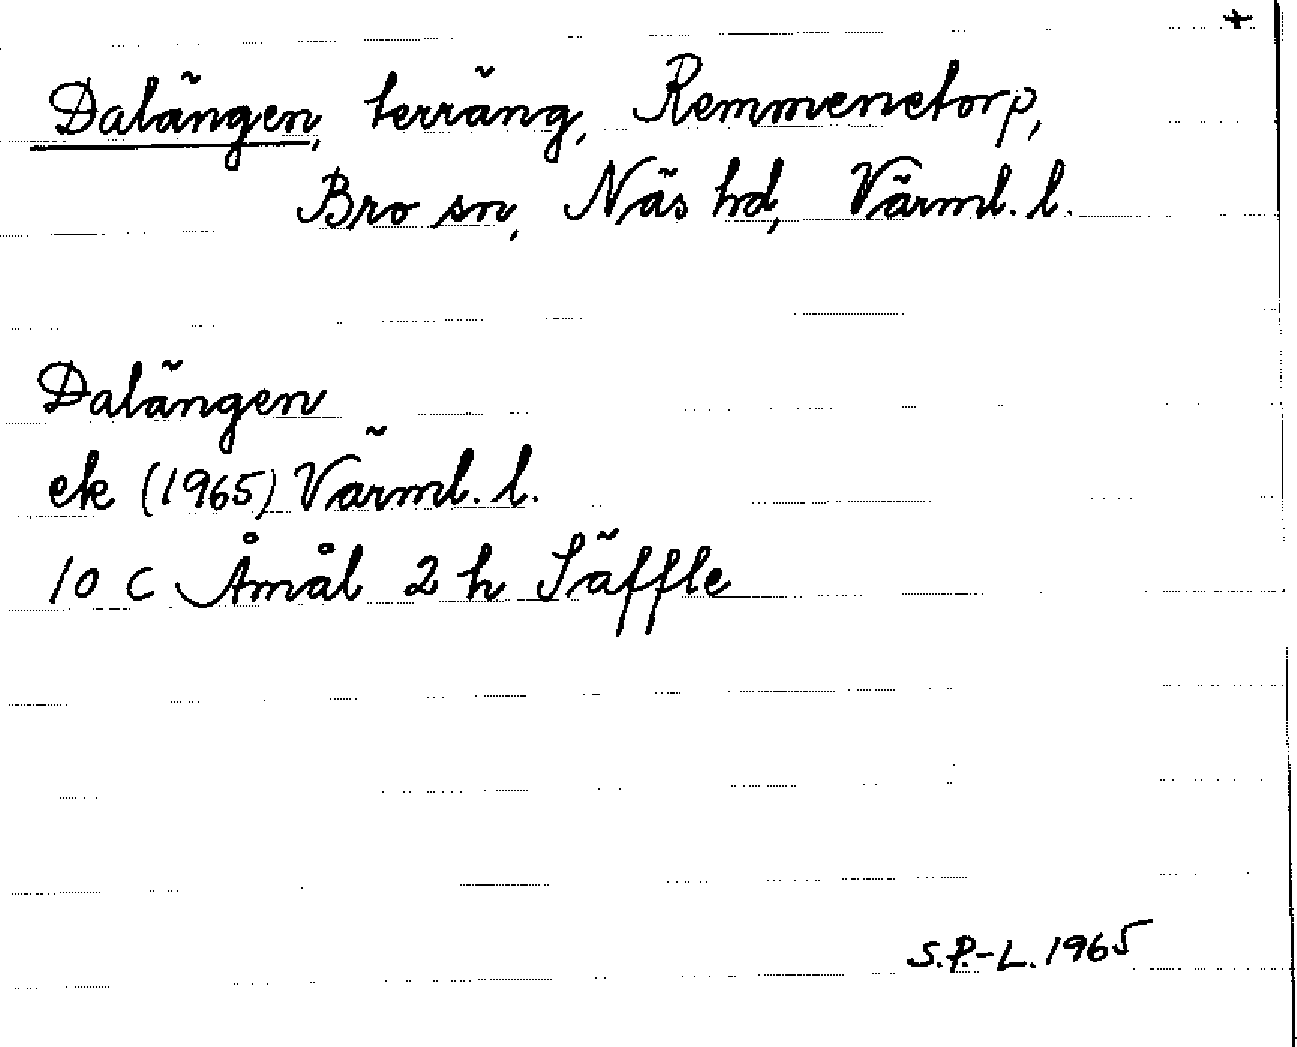 +
Dalängen, terräng, Remmenetorp,
Bro sn, Näs hd, Värml. l.
Dalängen
ek (1965) Värml. l.
10 C Åmål 2 h Säffle
S.P.-L. 1965